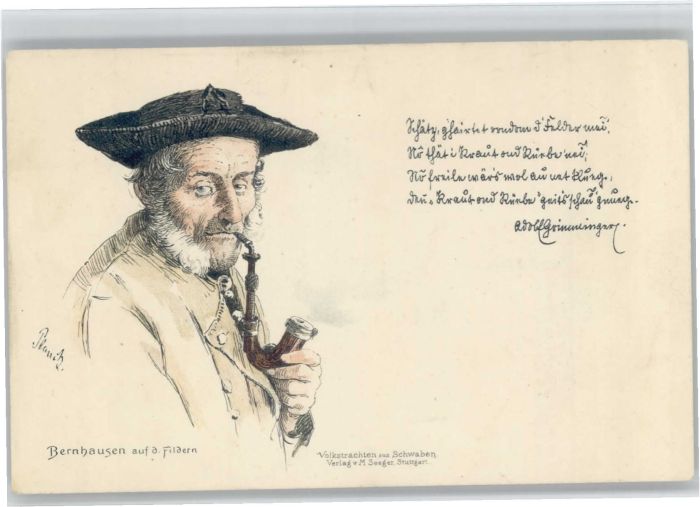 Schätz, g'hairtet rondom d' Felder mei,
Nō thät i Kraut ond Rüebe nei,
Nō freile wär's wol au net Rueg,
den Kraut ond Rüebe geit's schau gnueg.
Adolf Grimminger.
Planck
Bernhausen auf d. Fildern
Volkstrachten aus Schwaben
Verlag v. M. Seeger, Stuttgart.